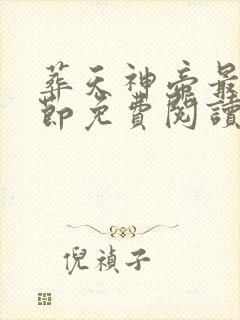 葬天神帝最
節免費閱讀
倪禎子